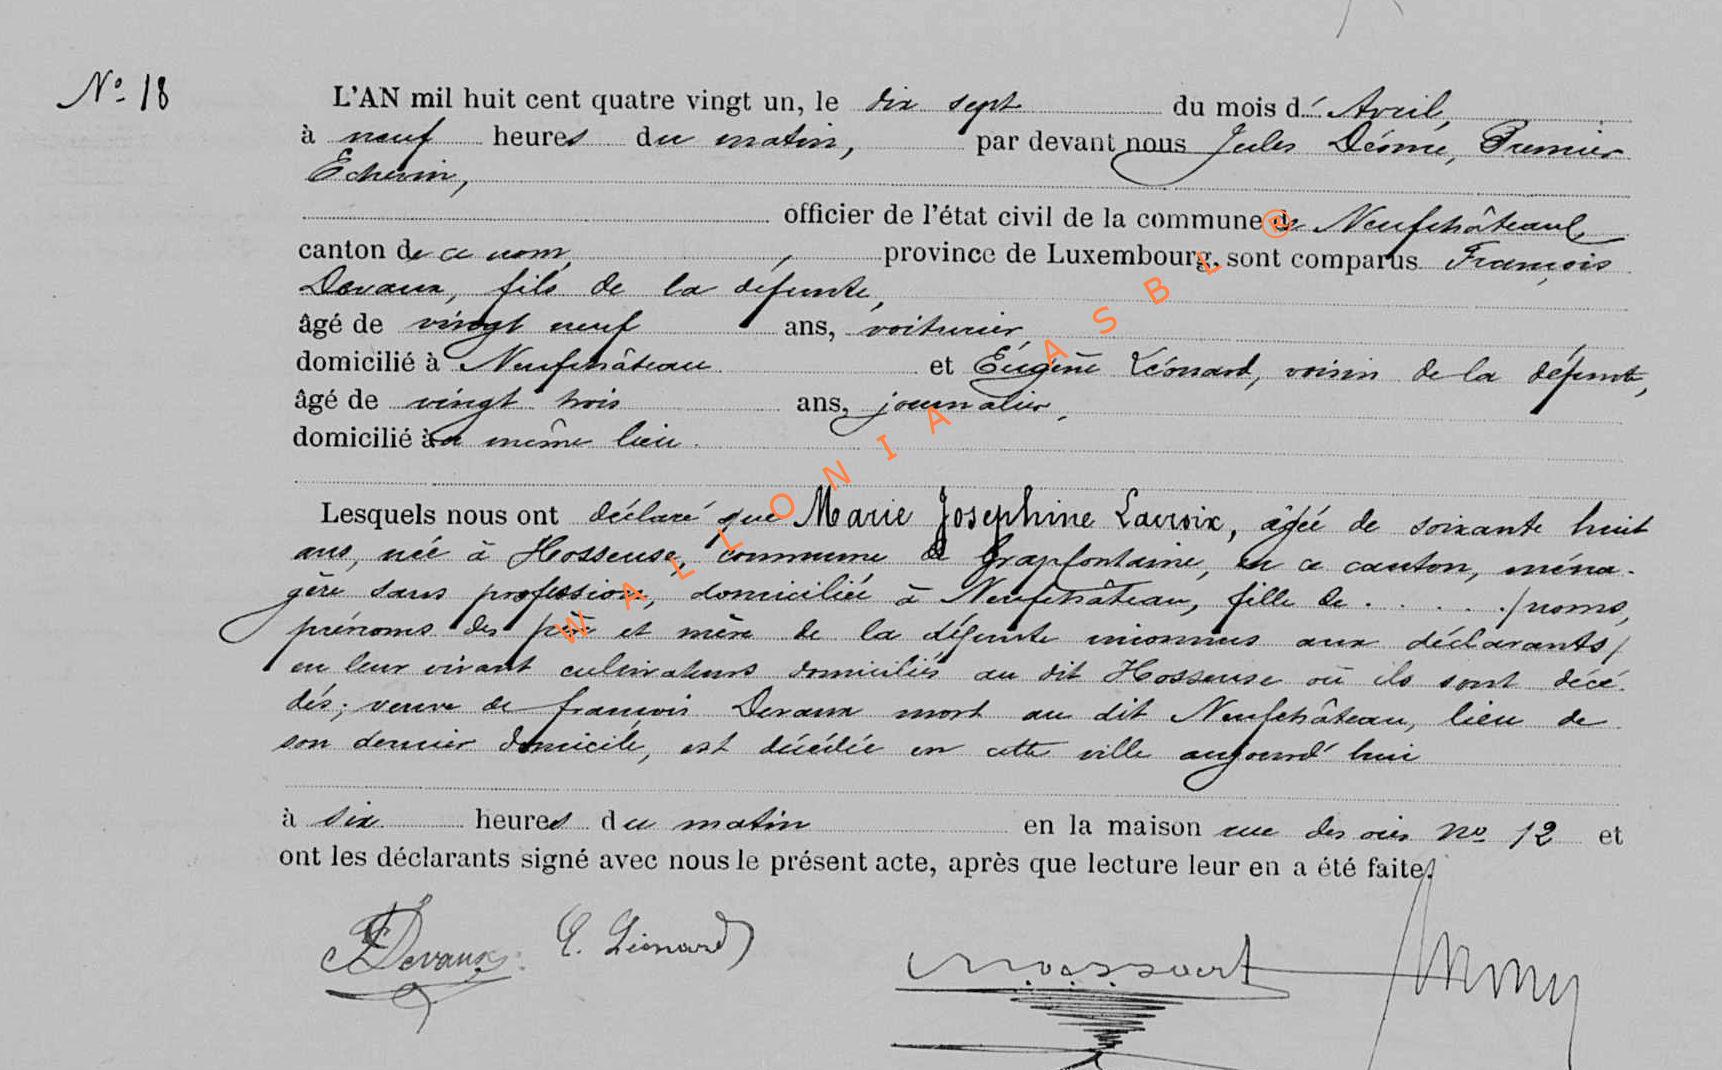 Nº 18
L'AN mil huit cent quatre vingt un, le dix sept du mois d' Avril,
à neuf heures du matin, par devant nous Jules Déome, Premier
Echevin,
officier de l'état civil de la commune de Neufchâteau
canton de ce nom, province de Luxembourg, sont comparus François
Devaux, fils de la défunte,
âgé de vingt neuf ans, voiturier,
domicilié à Neufchâteau et Eugène Léonard, voisin de la défunte,
âgé de vingt trois ans, journalier,
domicilié au même lieu.
Lesquels nous ont déclaré que Marie Josephine Lacroix, âgée de soixante huit
ans, née à Hosseuse, commune de Grapfontaine, en ce canton, ména-
gère sans profession, domiciliée à Neufchâteau, fille de . . . . . /noms,
prénoms des père et mère de la défunte inconnus aux déclarants/
en leur vivant cultivateurs domiciliés au dit Hosseuse où ils sont décé-
dés; veuve de françois Devaux mort au dit Neufchâteau, lieu de
son dernier domicile, est décédée en cette ville aujourd'hui
à six heures du matin en la maison rue des oies nº 12 et
ont les déclarants signé avec nous le présent acte, après que lecture leur en a été faite.
Devaux E. Léonard
WALLONIA ASBL ®